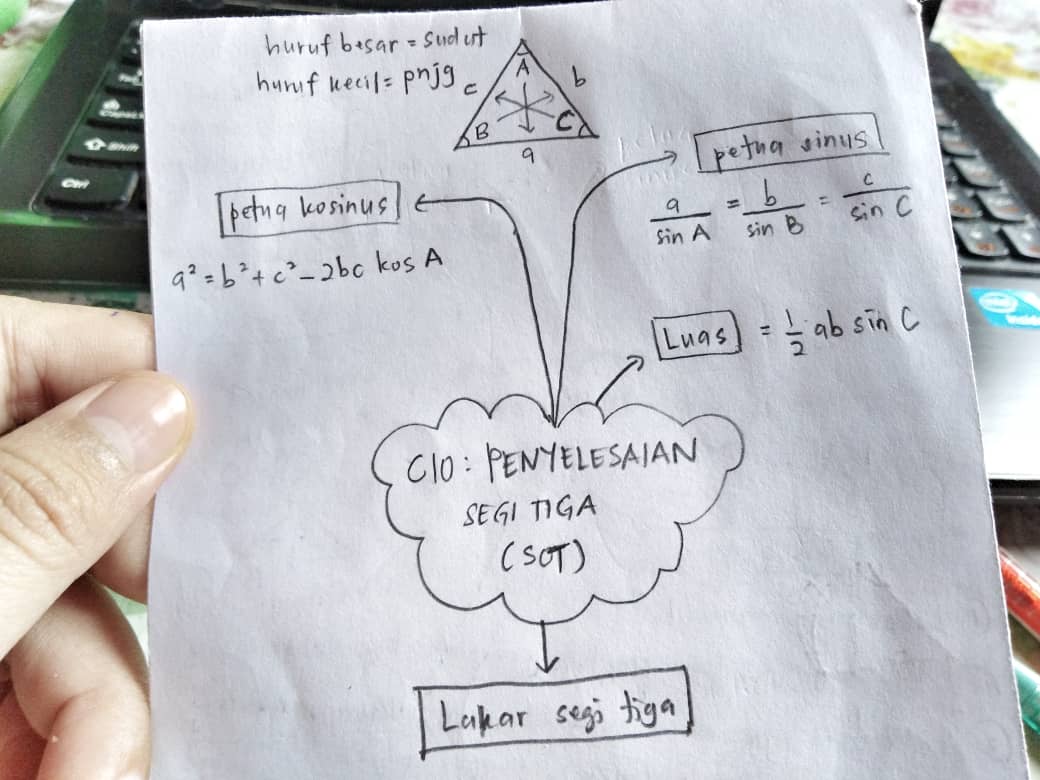 huruf besar = sudut
huruf kecil = pnjg
A
c
b
B
C
a
petua sinus
a/sin A = b/sin B = c/sin C
petua kosinus
a² = b² + c² - 2bc kos A
Luas = 1/2 ab sin C
C10: PENYELESAIAN
SEGI TIGA
(SOT)
Lakar segi tiga
Shift
Ctrl
intel